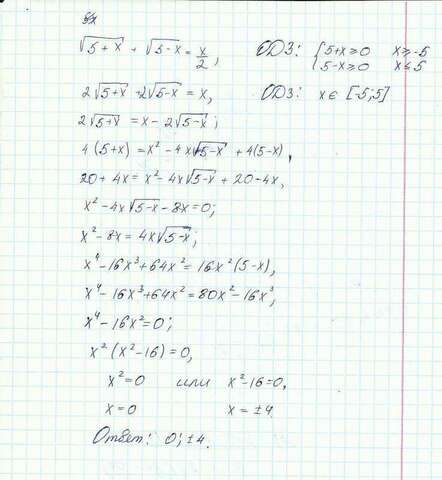 √5+x + √5-x = x/2, ОДЗ: { 5+x ≥ 0 x ≥ -5
5-x ≥ 0 x ≤ 5
2√5+x + 2√5-x = x, ОДЗ: x ∈ [-5;5]
2√5+x = x - 2√5-x;
4(5+x) = x² - 4x√5-x + 4(5-x),
20+4x = x² - 4x√5-x + 20-4x,
x² - 4x√5-x - 8x = 0;
x² - 8x = 4x√5-x;
x⁴ - 16x³ + 64x² = 16x²(5-x),
x⁴ - 16x³ + 64x² = 80x² - 16x³,
x⁴ - 16x² = 0;
x²(x² - 16) = 0,
x² = 0 или x² - 16 = 0,
x = 0 x = ±4
Ответ: 0; ±4.